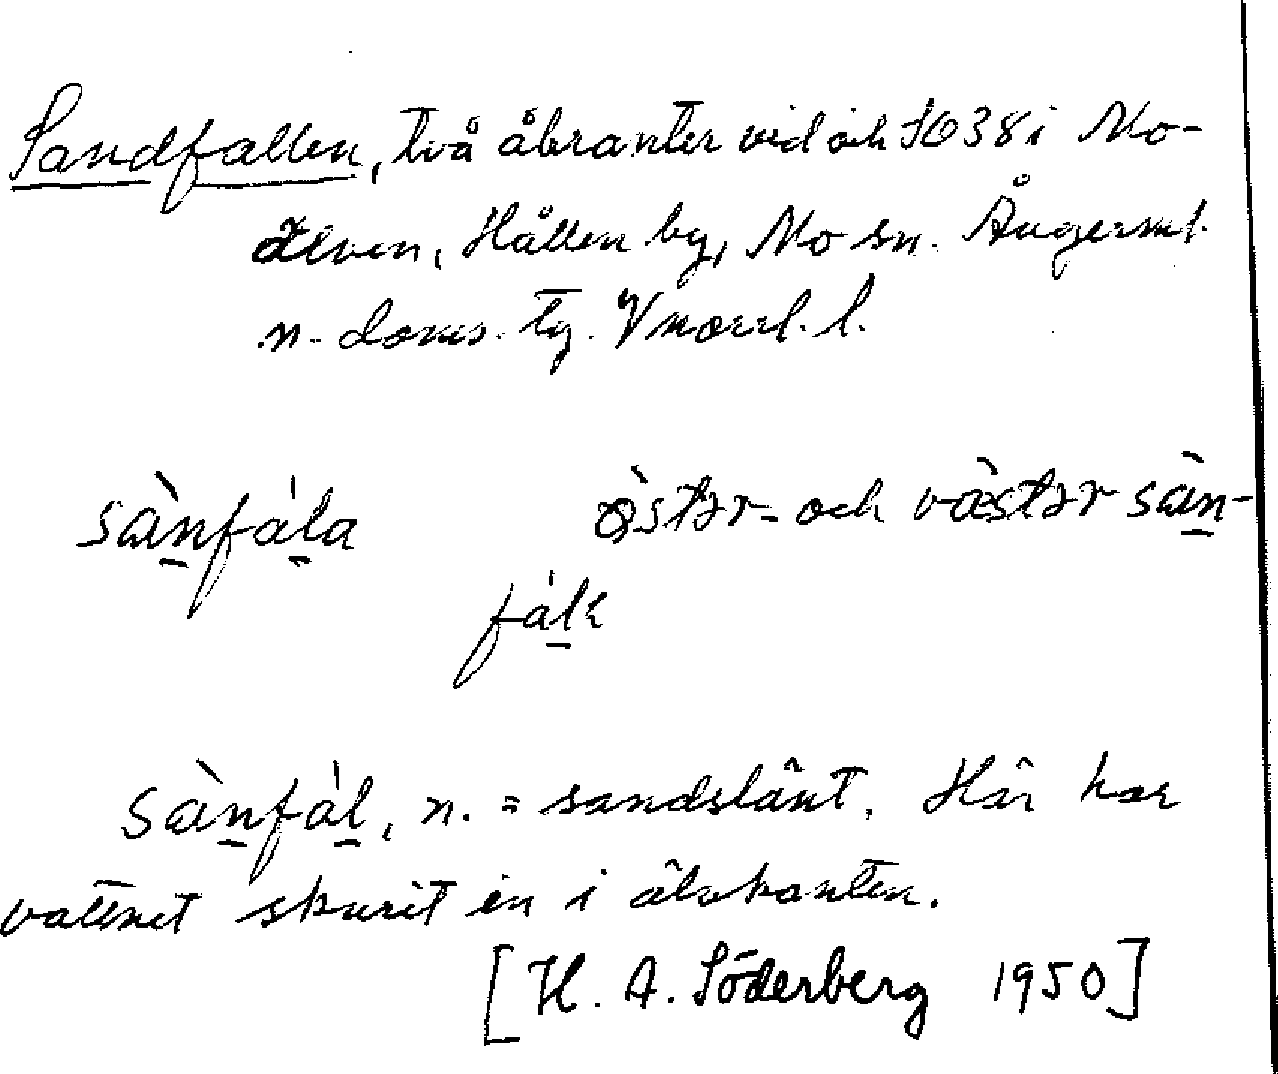 Sandfallen, två åbranter vid öh 1038 i Mo-
älven, Hållen by, Mo sn. Ångerml.
n. doms. tg. Vnorrl. l.
sànfála öster- och väster sàn-
fálę
Sànfál, n. = sandslänt. Här har
vattnet skurit in i älvkanten.
[K. A. Söderberg 1950]